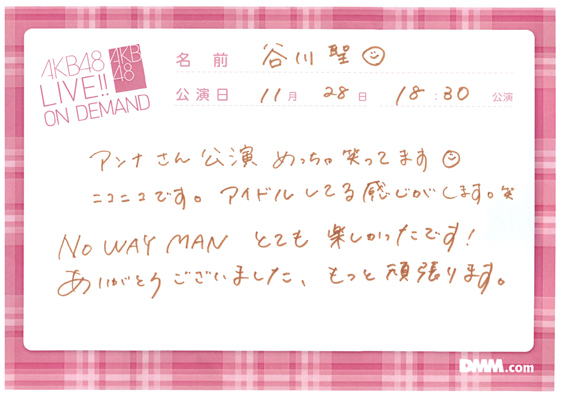 AKB48
LIVE!!
ON DEMAND
AKB
48
名前 谷川聖☺
公演日 11月 28日 18:30 公演
アンナさん公演 めっちゃ笑ってます☺
ニコニコです。アイドルしてる感じがします。笑
NO WAY MAN とても 楽しかったです!
ありがとうございました、もっと頑張ります。
DMM.com